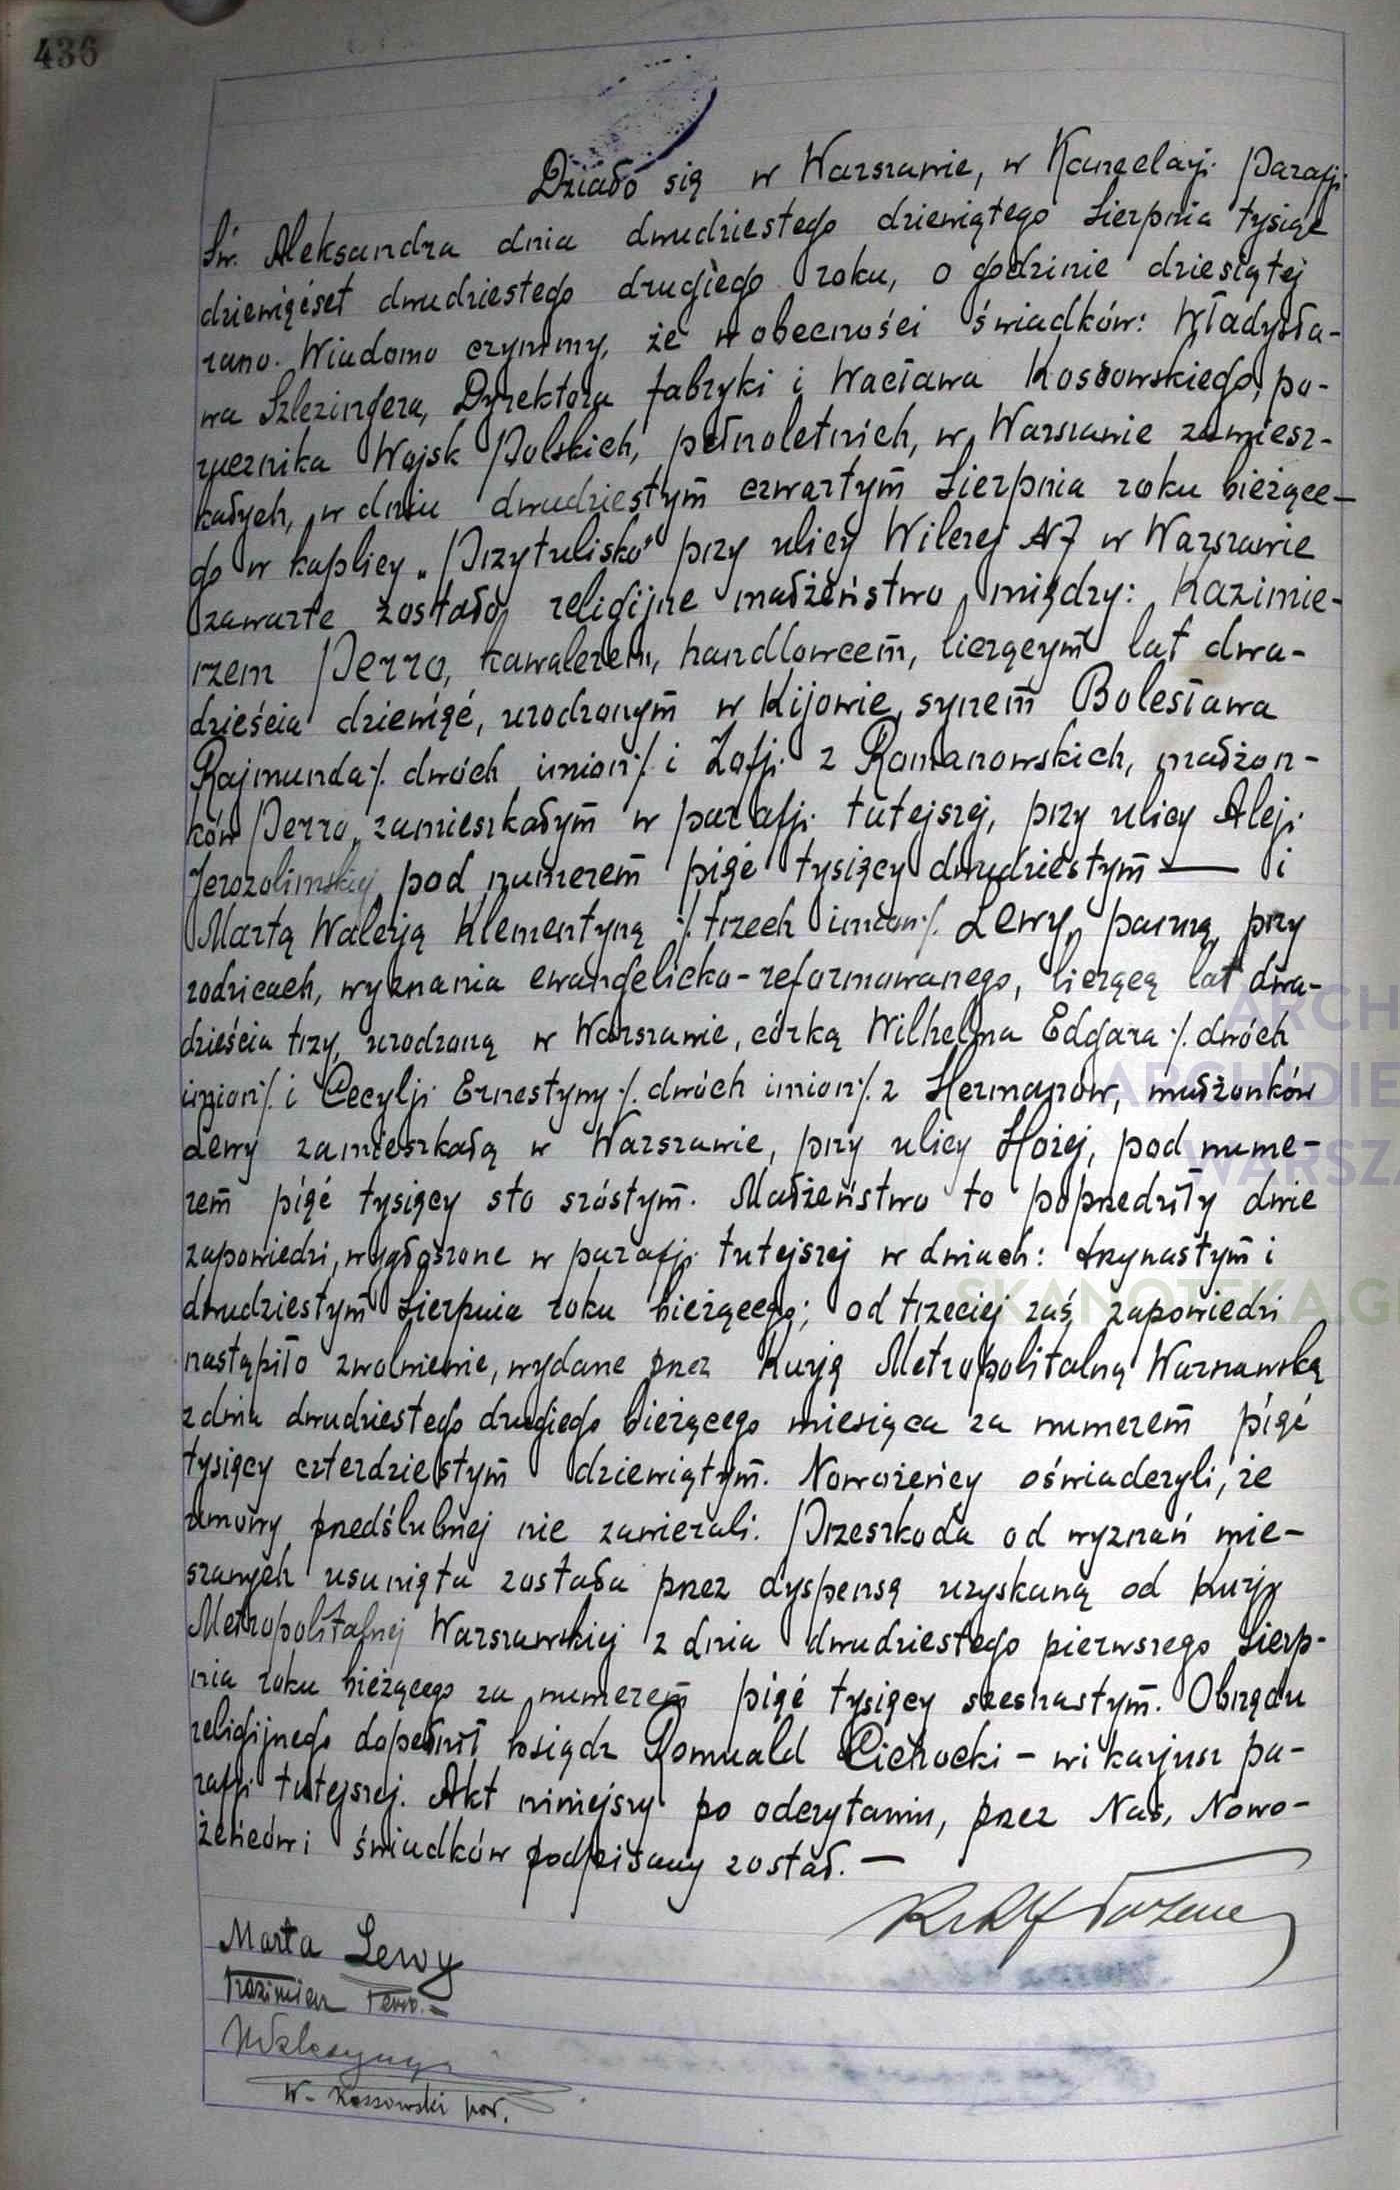 436
Działo się w Warszawie, w Kancelarji Parafji
Św. Aleksandra dnia dwudziestego dziewiątego Sierpnia tysiąc
dziewięćset dwudziestego drugiego roku, o godzinie dziesiątej
rano. Wiadomo czynimy, że w obecności świadków: Władysła-
wa Szlezingera, Dyrektora fabryki i Wacława Kossowskiego, po-
rucznika Wojsk Polskich, pełnoletnich, w Warszawie zamiesz-
kałych, w dniu dwudziestym czwartym Sierpnia roku bieżące-
go w kaplicy „Przytulisko" przy ulicy Wilczej N7 w Warszawie
zawarte zostało religijne małżeństwo między: Kazimie-
rzem Perro, kawalerem, handlowcem, liczącym lat dwa-
dzieścia dziewięć, urodzonym w Kijowie, synem Bolesława
Rajmunda ·/. dwóch imion ·/. i Zofji z Romanowskich, małżon-
ków Perro, zamieszkałym w parafji tutejszej, przy ulicy Aleji
Jerozolimskiej pod numerem pięć tysięcy dwudziestym — i
Martą Walerją Klementyną ·/. trzech imion ·/. Lewy, panną, przy
rodzicach, wyznania ewangelicko-reformowanego, liczącą lat dwa-
dzieścia trzy, urodzoną w Warszawie, córką Wilhelma Edgara ·/. dwóch
imion ·/. i Cecylji Ernestyny ·/. dwóch imion ·/. z Hermanów, małżonków
Lewy zamieszkałą w Warszawie, przy ulicy Hożej, pod nume-
rem pięć tysięcy sto szóstym. Małżeństwo to poprzedziły dwie
zapowiedzi, wygłoszone w parafji tutejszej w dniach: trzynastym i
dwudziestym Sierpnia roku bieżącego; od trzeciej zaś zapowiedzi
nastąpiło zwolnienie, wydane przez Kurję Metropolitalną Warszawską
z dnia dwudziestego drugiego bieżącego miesiąca za numerem pięć
tysięcy czterdziestym dziewiątym. Nowożeńcy oświadczyli, że
umowy przedślubnej nie zawierali. Przeszkoda od wyznań mie-
szanych usunięta została przez dyspensę uzyskaną od Kurji
Metropolitalnej Warszawskiej z dnia dwudziestego pierwszego Sierp-
nia roku bieżącego za numerem pięć tysięcy szesnastym. Obrzędu
religijnego dopełnił ksiądz Romuald Cichocki - wikarjusz pa-
rafji tutejszej. Akt niniejszy po odczytaniu, przez Nas, Nowo-
żeńców i świadków podpisany został. —
Marta Lewy
Kazimierz Perro.
W - Kossowski por.
ARCH
ARCHDIE
WARSZA
SKANOTEKA.G